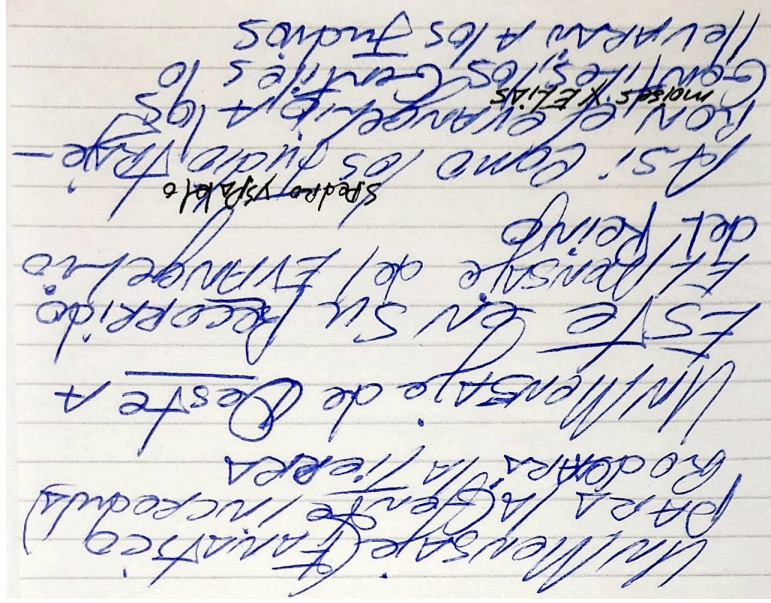 Un Mensaje (Fanatico
para la Gente Incredula)
Rodeara la Tierra
Un Mensaje de Oeste A
ESTE en su Recorrido
El Mensaje del Evangelio
del Reino
SPedro y SPablo
Asi como los Judio Traje-
ron el evangelio, A los
moises y ELias
Gentiles, los Gentiles lo
llevaran A los Judios